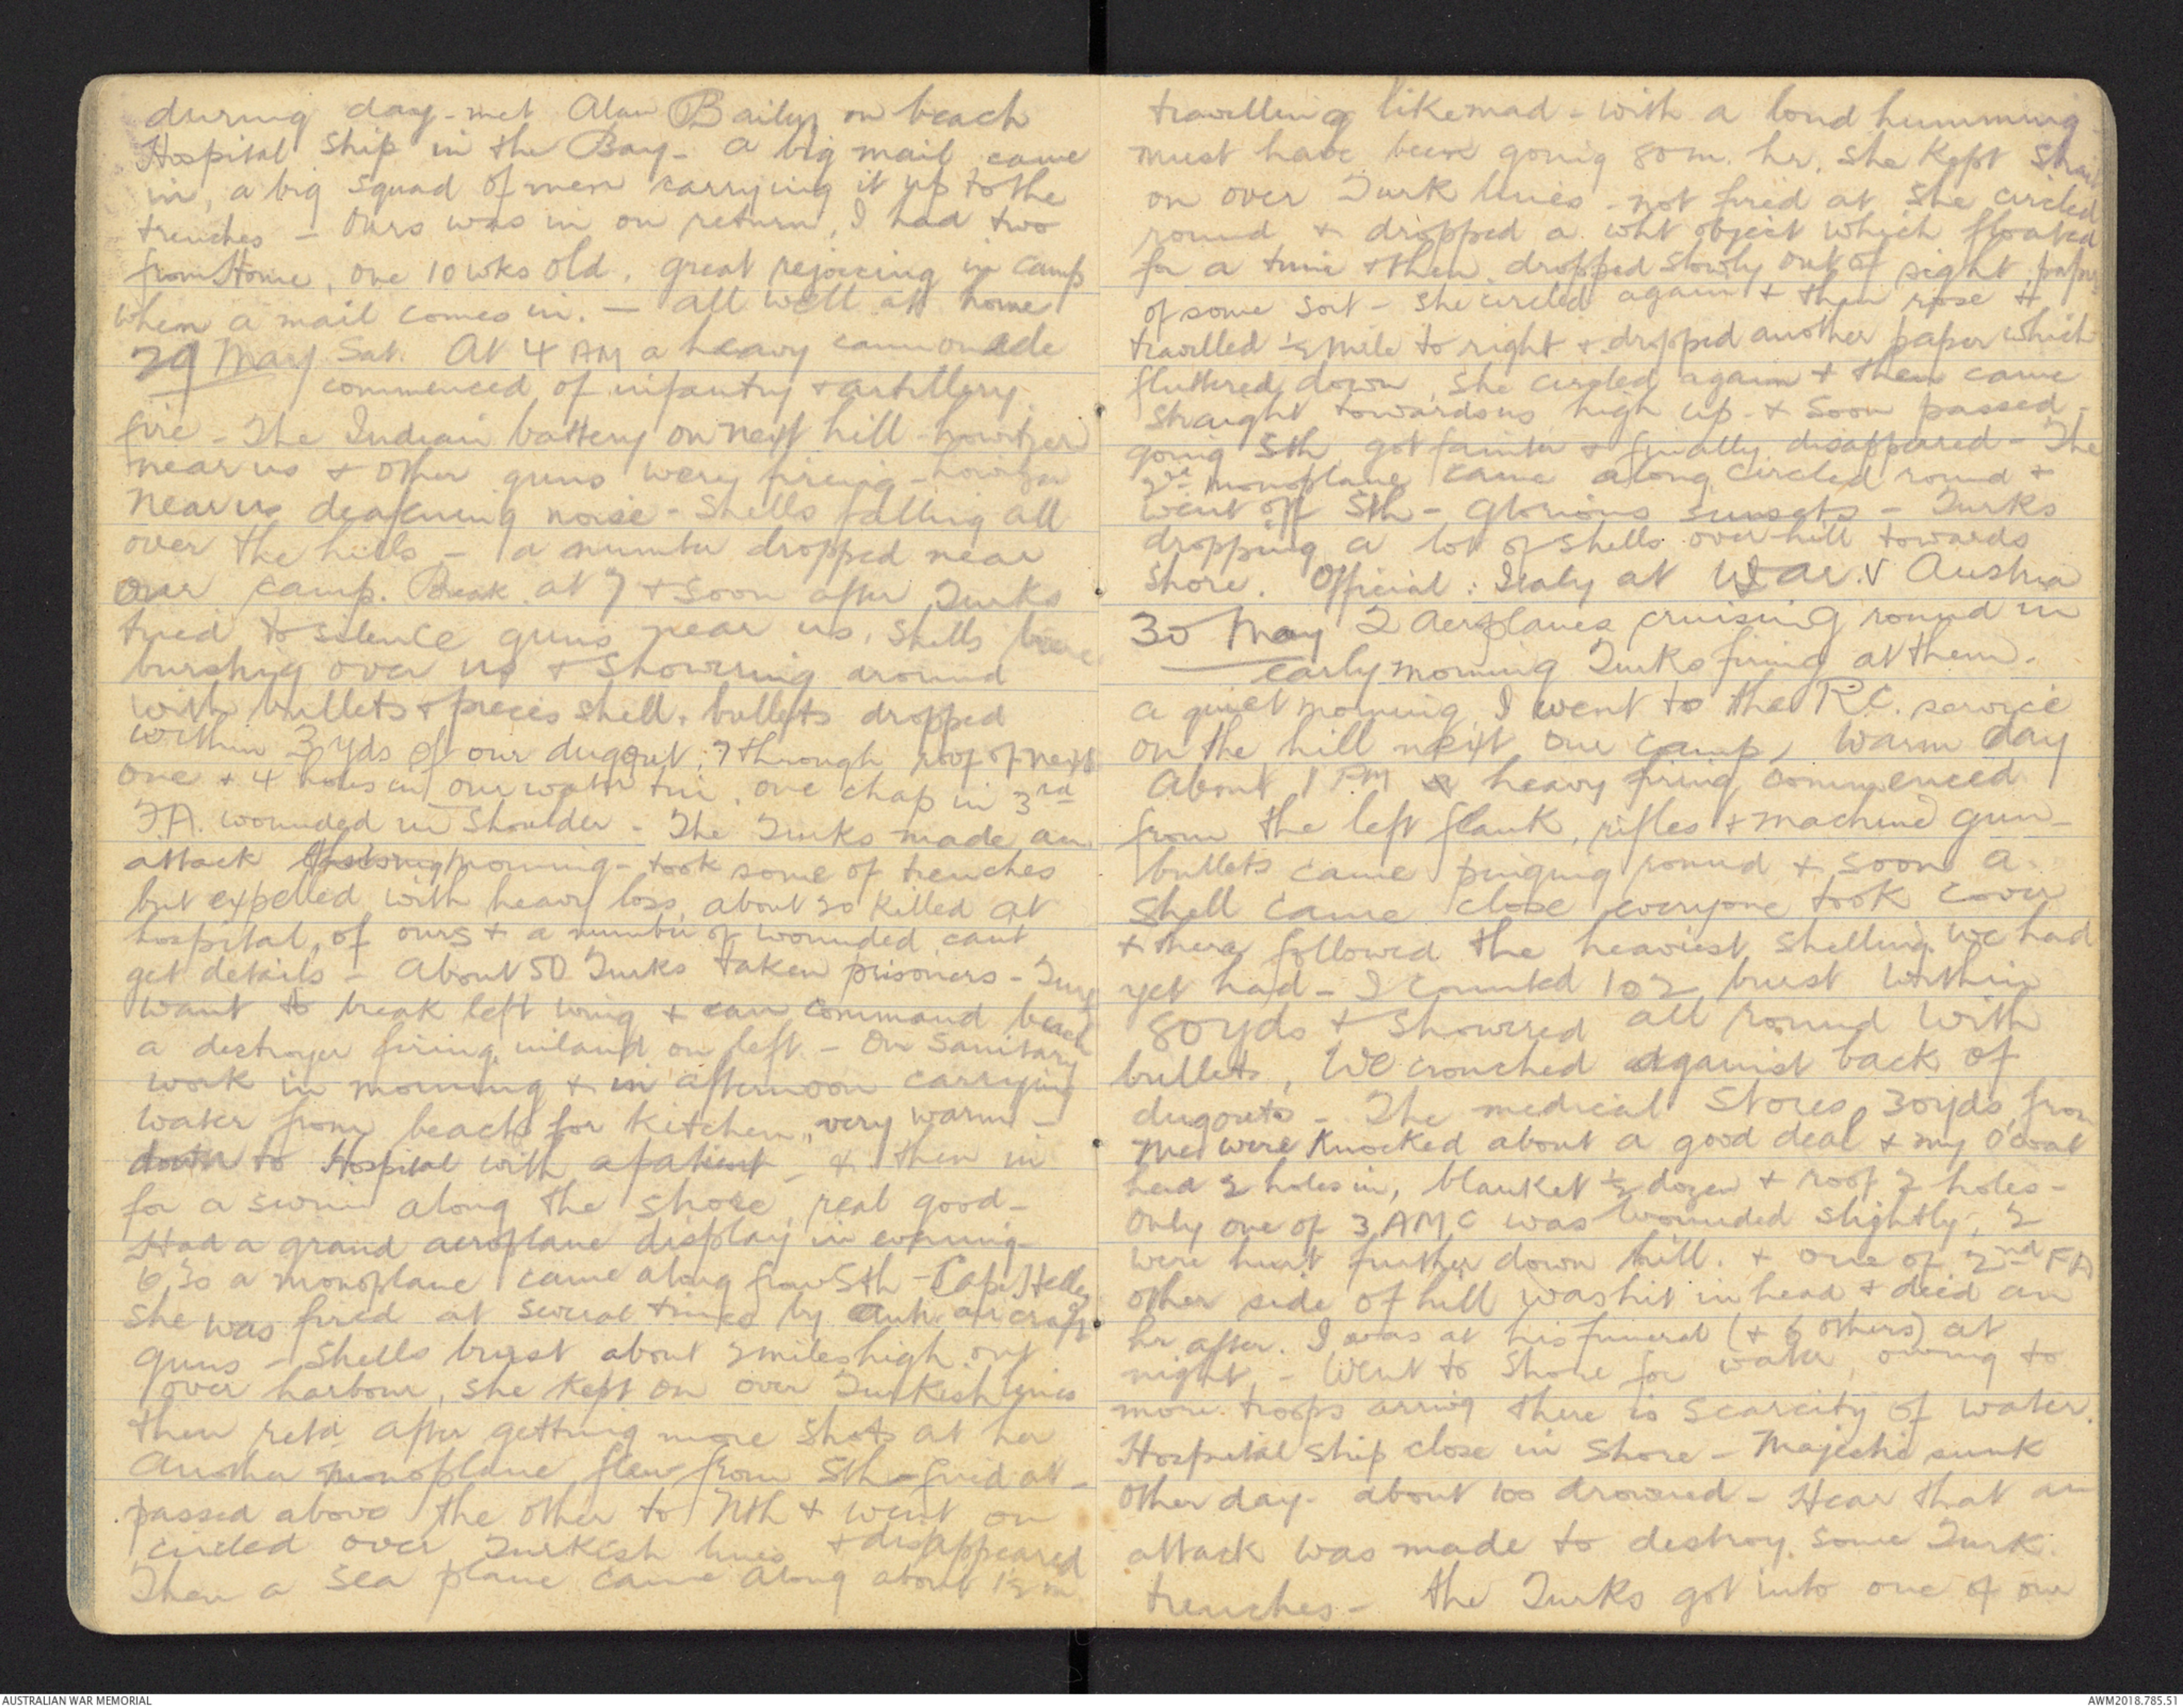 during day - met Alan Baily on beach
Hospital Ship in the Bay - a big mail came
in, a big squad of men carrying it up to the
trenches - Ours was in on return, I had two
from Home, one 10 wks old. great rejoicing in camp
when a mail comes in. - all well at home
29 May Sat. At 4 AM a heavy cannonade
commenced of infantry & artillery
fire - The Indian battery on next hill - howitzer
near us & other guns were firing - howitzer
near us deafening noise - Shells falling all
over the hills - a number dropped near
our camp. Break. at 7 & soon after Turks
tried to silence guns near us, shells were
bursting over us & showering around
with bullets & pieces shell. bullets dropped
within 3 yds of our dugout, 7 through roof of next
one & 4 holes in our water tin. one chap in 3rd
F.A. wounded in shoulder - The Turks made an
attack morning - took some of trenches
but expelled with heavy loss, about 20 killed at
hospital, of ours & a number of wounded cant
get details - About 50 Turks taken prisoners - Turks
want to break left wing & can command beach
a destroyer firing inland on left - On Sanitary
work in morning & in afternoon carrying
water from beach for kitchen, very warm -
down to Hospital with a patient - & then in
for a swim along the shore, real good -
Had a grand aeroplane display in evening -
6.30 a monoplane came along from Sth - Cape Helles
she was fired at several times by anti air craft
guns - Shells burst about 2 miles high out
over harbour, she kept on over Turkish lines
then retd after getting more shots at her
Another monoplane flew from Sth - fired at -
passed above the other to Nth & went on
circled over Turkish lines & disappeared
Then a sea plane came along about 1½ m
travelling like mad - with a loud humming
must have been going 80 m. hr. She kept strait
on over Turk lines - not fired at she circled
round & dropped a wht object which floated
for a time & then dropped slowly out of sight paper
of some sort - she circled again & then rose &
travelled ½ mile to right & dropped another paper which
fluttered down, she circled again & then came
straight towards us high up - & soon passed -
going Sth, got fainter & finally disappeared - The
2nd monoplane came along circled round &
went off Sth - Glorious sunsets - Turks
dropping a lot of shells over hill towards
Shore. Official: Italy at War. v Austria
30 May 2 aeroplanes cruising round in
early morning Turks firing at them.
a quiet morning, I went to the R.C. service
on the hill next our camp, Warm day
About 1 PM heavy firing commenced
from the left flank, rifles & machine gun -
bullets came pinging round & soon a
shell came close everyone took cover
& there followed the heaviest shelling we had
yet had - I counted 102 burst within
80 yds & showered all round with
bullets, We crouched against back of
dugouts - The medical Stores, 30 yds from
me were knocked about a good deal & my O'coat
had 2 holes in, blanket ½ dozen & roof 2 holes -
Only one of 3 AMC was wounded slightly, 2
were hurt further down hill. & one of 2nd FA
other side of hill was hit in head & died an
hr. after. I was at his funeral (& 6 others) at
night - Went to Shore for water, owing to
more troops arrivg there is scarcity of water.
Hospital ship close in Shore - Majestic sunk
other day - about 100 drowned - Hear that an
attack was made to destroy some Turk
trenches - the Turks got into one of our
AUSTRALIAN WAR MEMORIAL
AWM2018.785.51